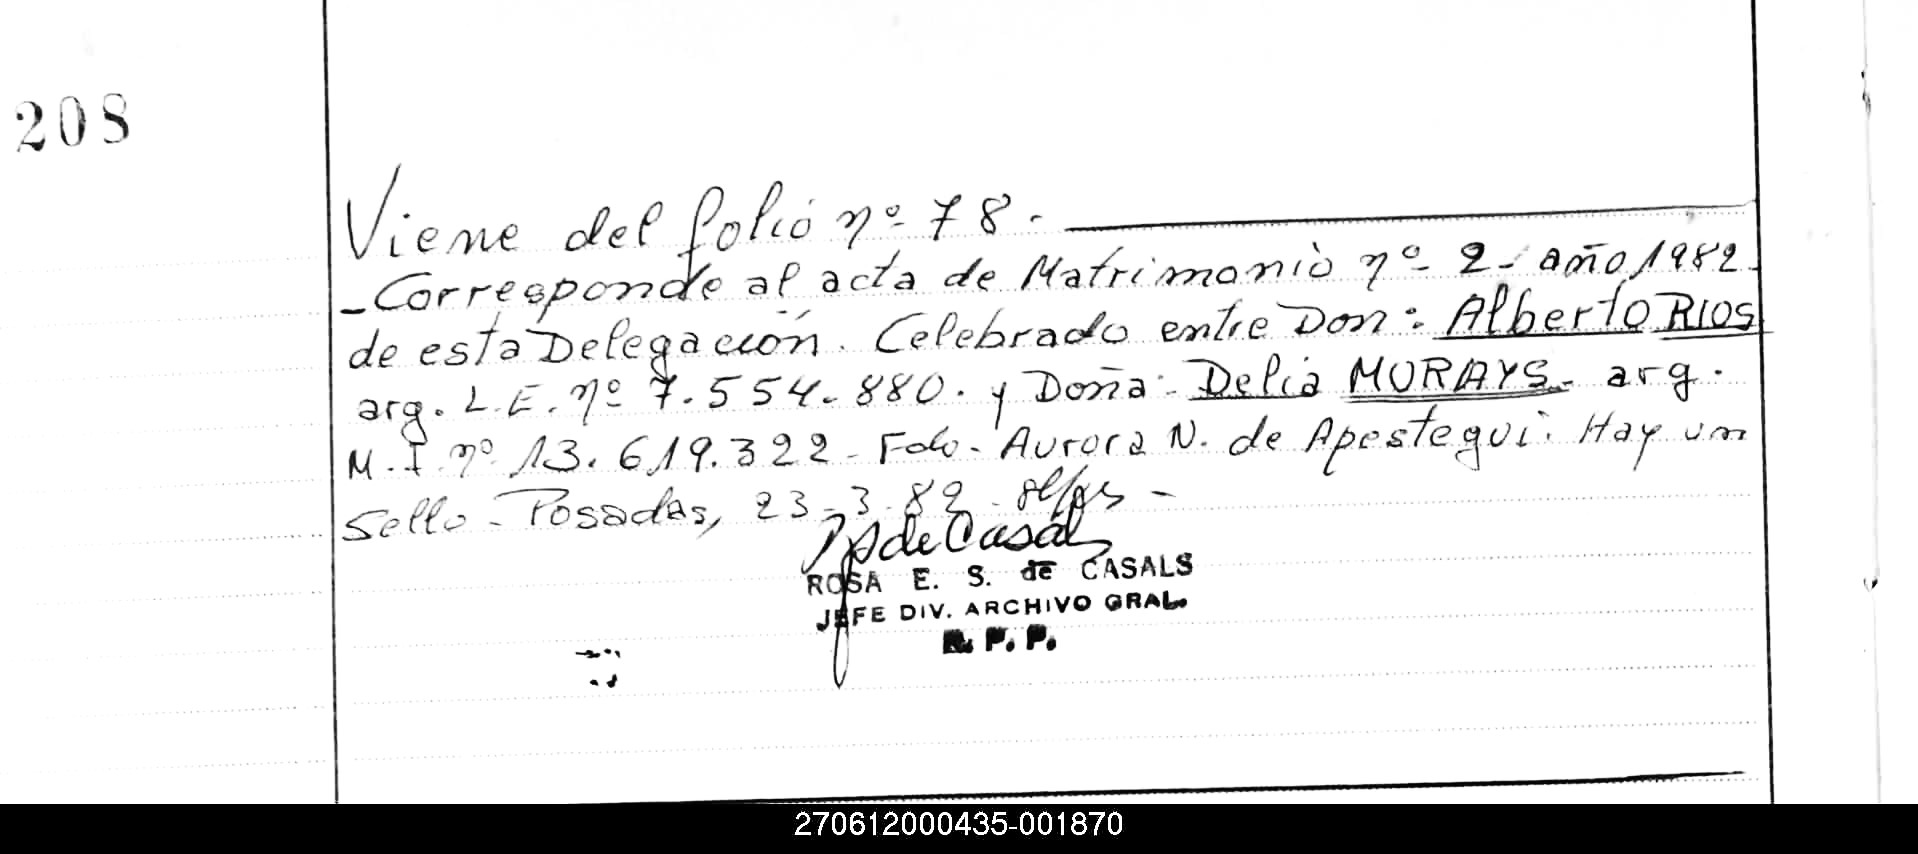 208
Viene del folio nº 78.
- Corresponde al acta de Matrimonio nº 2 - año 1982.
de esta Delegación. Celebrado entre Don: Alberto RIOS
arg. L.E. nº 7.554.880. y Doña: Delia MURAYS - arg.
M.I. nº 13.619.322 - Fdo. Aurora N. de Apestegui. Hay un
Sello - Posadas, 23-3-82 -
ROSA E. S. de CASALS
JEFE DIV. ARCHIVO GRAL.
R. P. P.
270612000435-001870